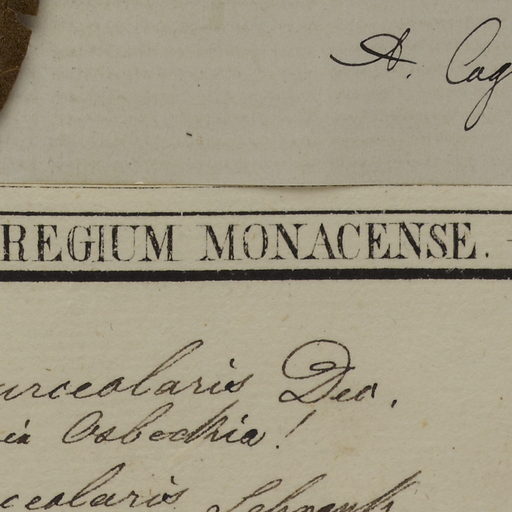 A. Cog
REGIUM MONACENSE.
urceolaris Dec.
Osbeckia!
ceolaris Schrank